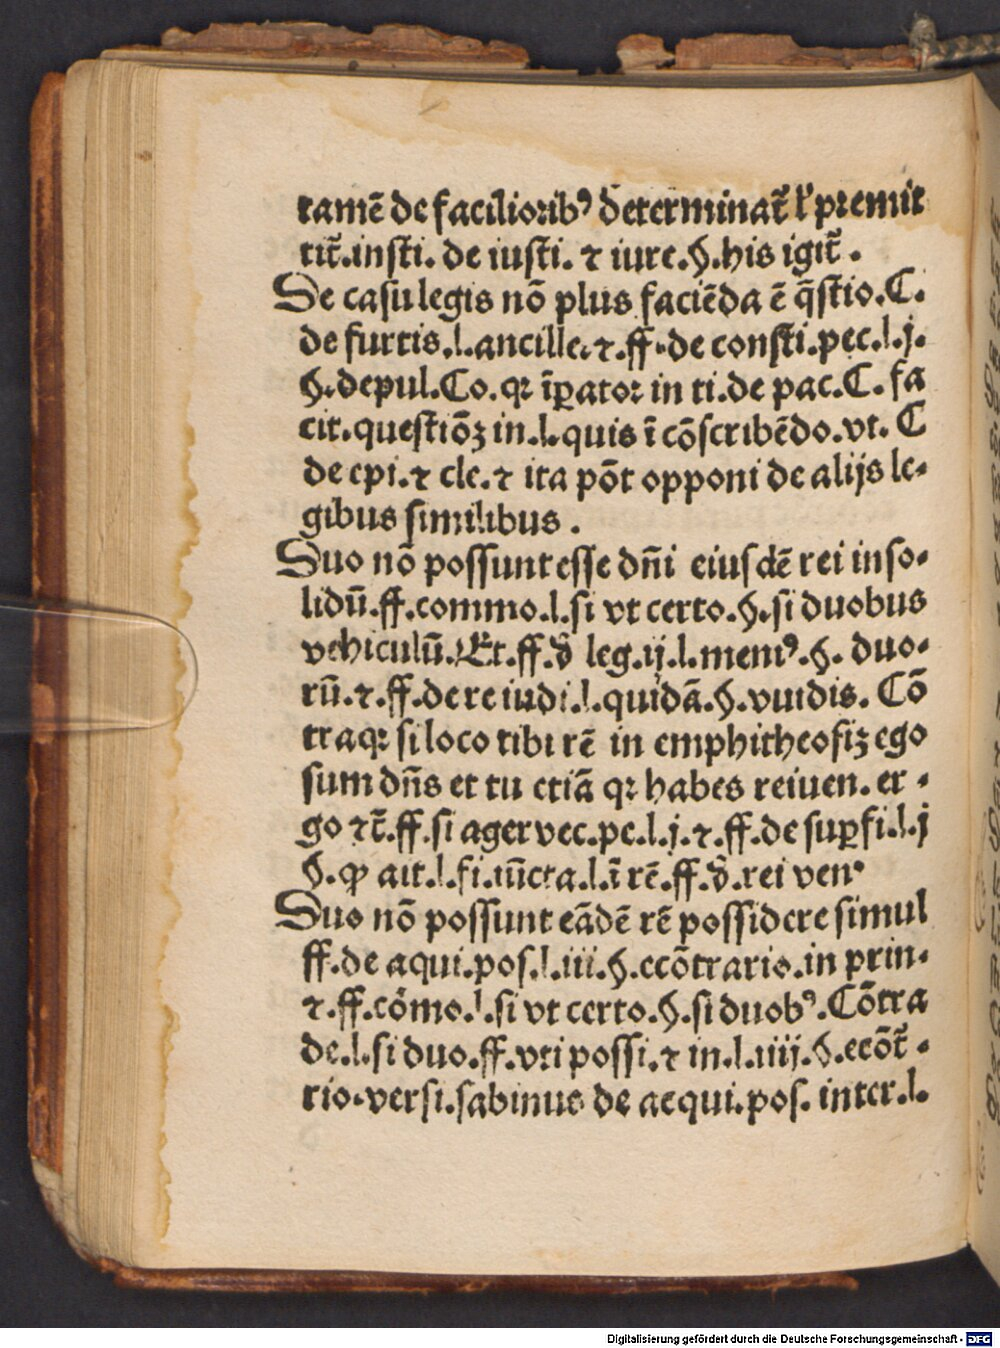 tamē de facilioribꝰ determinat̄ ł premit
tit̄.insti. de iusti. ⁊ iure.§.his igit̄.
De casu legis nō plus faciēda ē q̄stio.C.
de furtis.l.ancille.⁊.ff.de consti.pec.l.j.
§.depul.Co.qꝛ īꝑator in ti.de pac.C. fa
cit.questiōꝫ in.l.quis ī cōscribēdo.vt. C
de epi.⁊ cle.⁊ ita pōt opponi de alijs le-
gibus similibus.
Duo nō possunt esse dn̄i eiusdē rei inso-
lidū.ff.commo.l.si vt certo.§.si duobus
vehiculū.Et.ff.d̄ leg.ij.l.meniꝰ.§. duo-
rū.⁊.ff.de re iudi.l.quidā.§.vuidis. Cō
tra qꝛ si loco tibi rē in emphitheosiꝫ ego
sum dn̄s et tu etiā qꝛ habes reiuen. er-
go ⁊t̄.ff.si ager vec.pe.l.j.⁊.ff.de suꝑfi.l.j
§.ꝙ ait.l.fi.iūcta.l.ī rē.ff.d̄.rei ven
Duo nō possunt eādē rē possidere simul
ff.de aqui.pos.l.iii.§.ecōtrario.in prin-
⁊.ff.cōmo.l.si vt certo.§.si duobꝰ.Cōtra
de.l.si duo.ff.vti possi.⁊ in.l.iiij.§.ecōt̄-
rio.versi.sabinus de aequi.pos. inter.l.
Digitalisierung gefördert durch die Deutsche Forschungsgemeinschaft - DFG